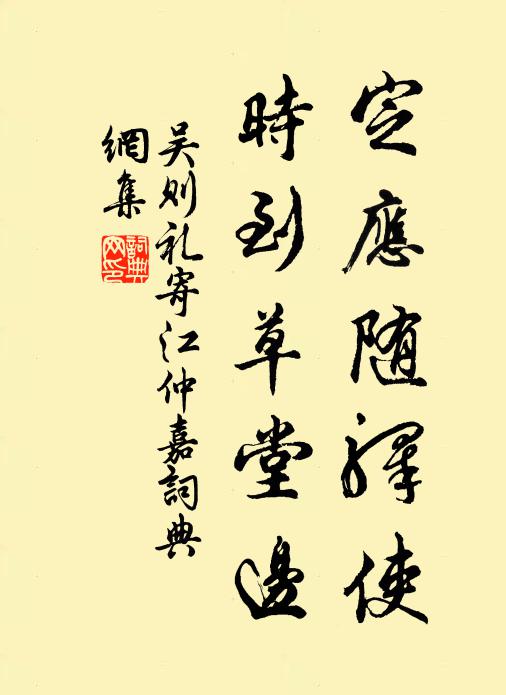 定應随驛使
時到草堂邊
吴则礼寄江仲嘉詞典
網集
詞典
网印